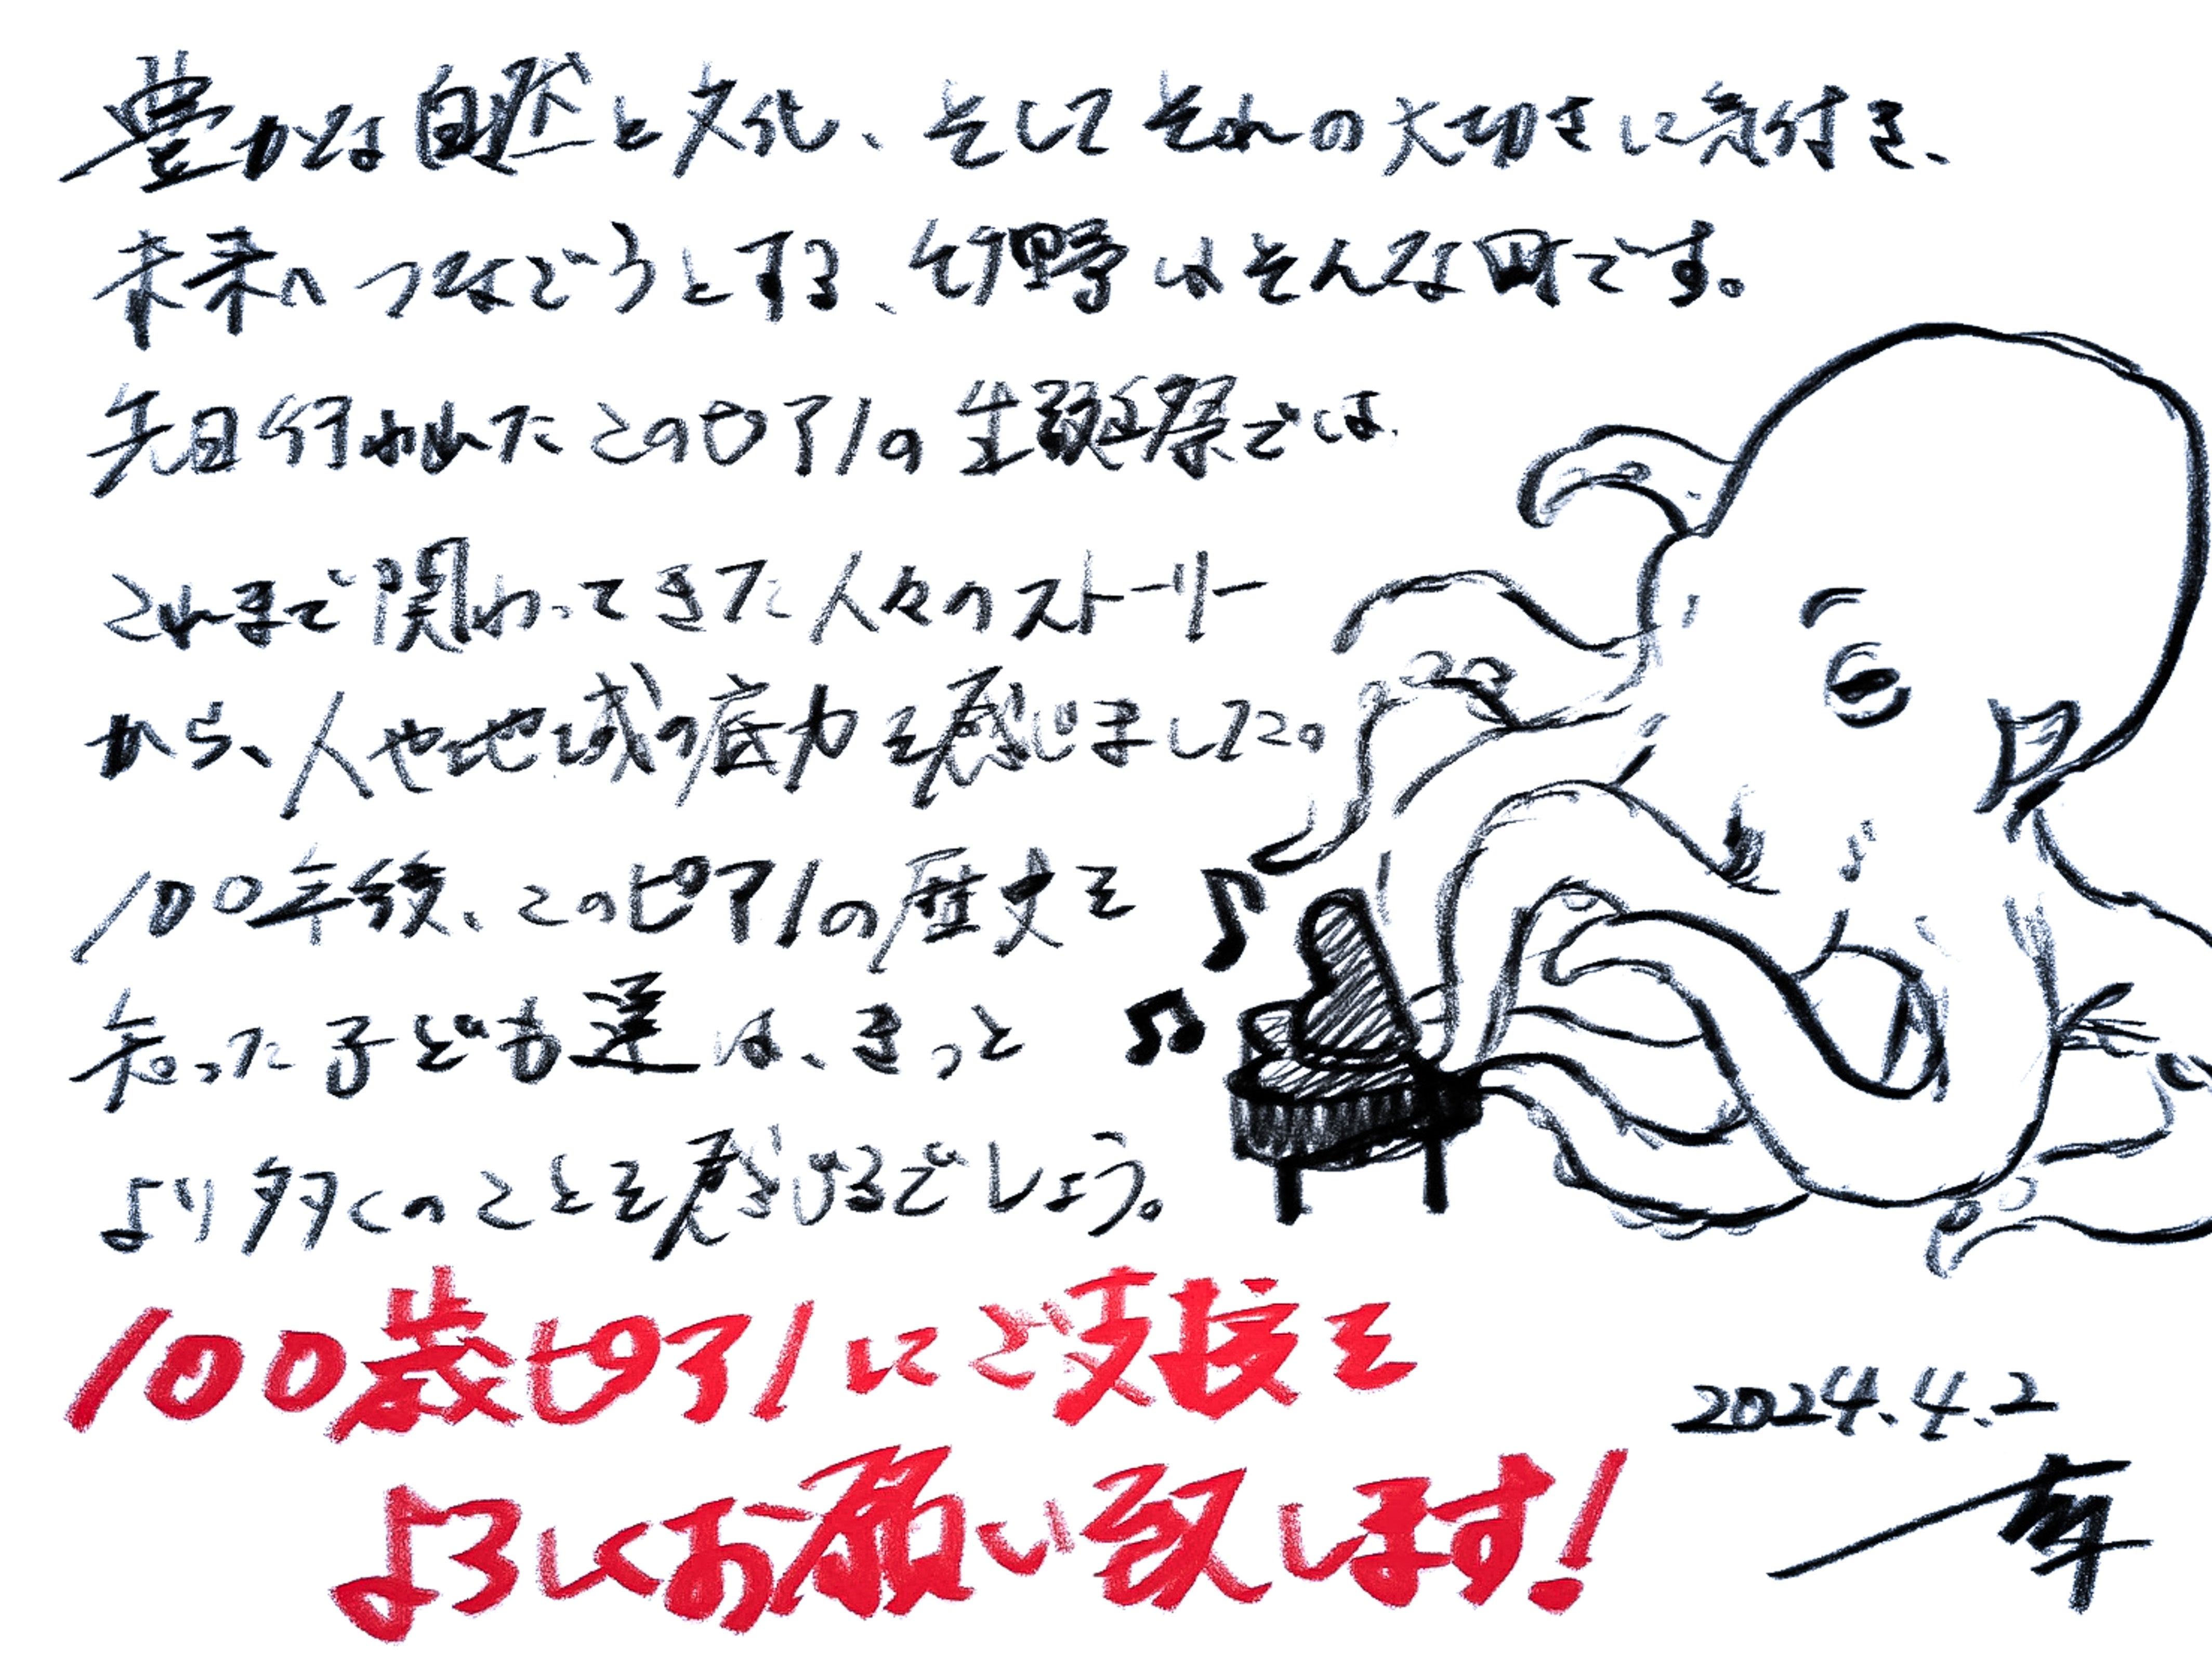 豊かな自然と文化、そしてそれの大切さに気付き、
未来へつなごうとする、竹野はそんな町です。
先日行われたこのピアノの生誕祭では、
これまで関わってきた人々のストーリー
から、人や地域の底力を感じました。
100年後、このピアノの歴史を
知った子ども達は、きっと
より多くのことを感じるでしょう。
100歳ピアノにご支援を
よろしくお願い致します!
2024.4.2